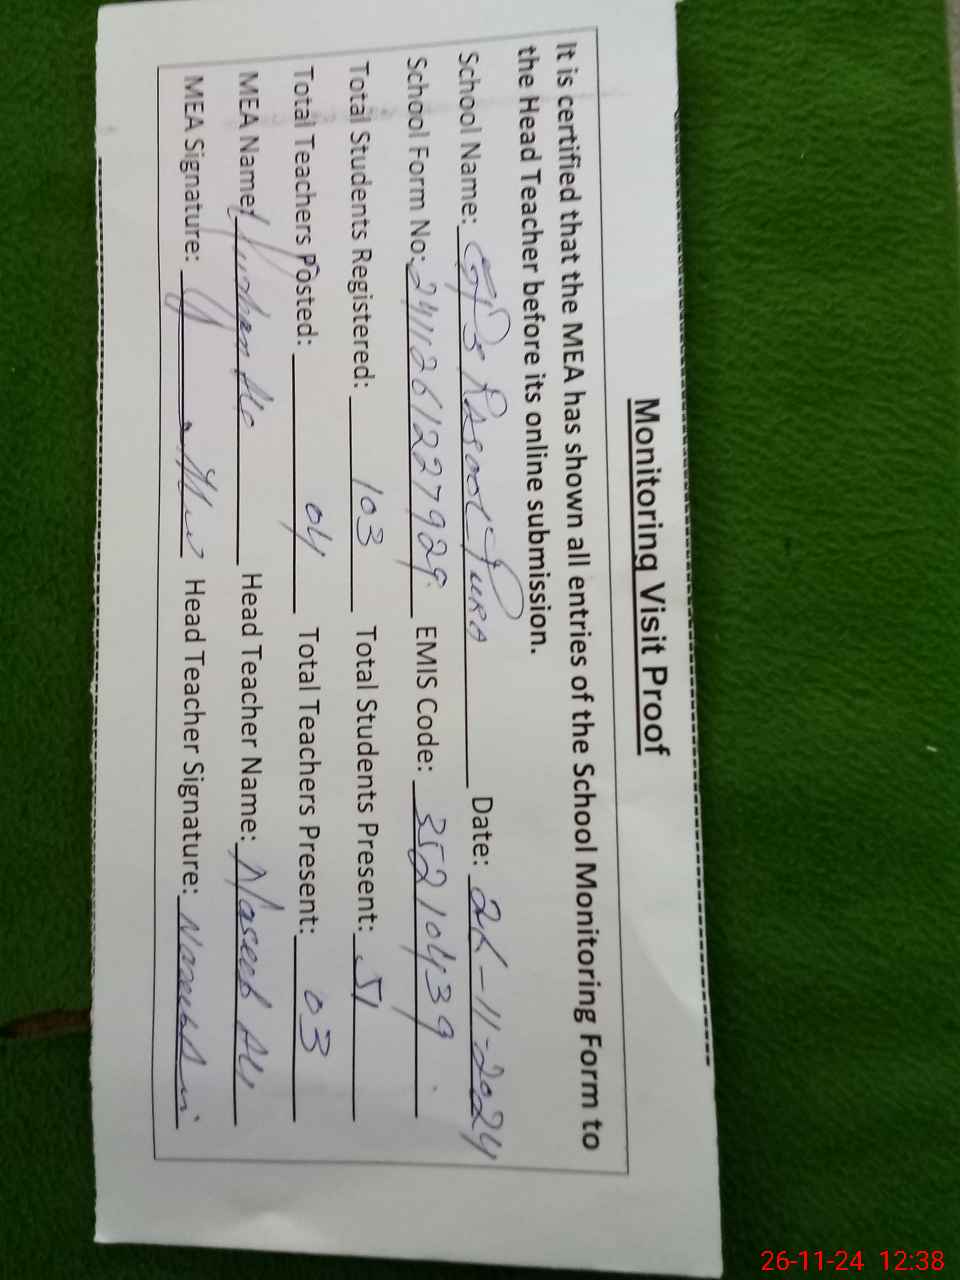 Monitoring Visit Proof
It is certified that the MEA has shown all entries of the School Monitoring Form to
the Head Teacher before its online submission.
School Name: GPS Rasool Pura Date: 26-11-2024
School Form No: 2411261227929 EMIS Code: 35210439
Total Students Registered: 103 Total Students Present: 51
Total Teachers Posted: 04 Total Teachers Present: 03
MEA Name: Head Teacher Name: Naseeb Ali
MEA Signature: Head Teacher Signature:
26-11-24 12:38